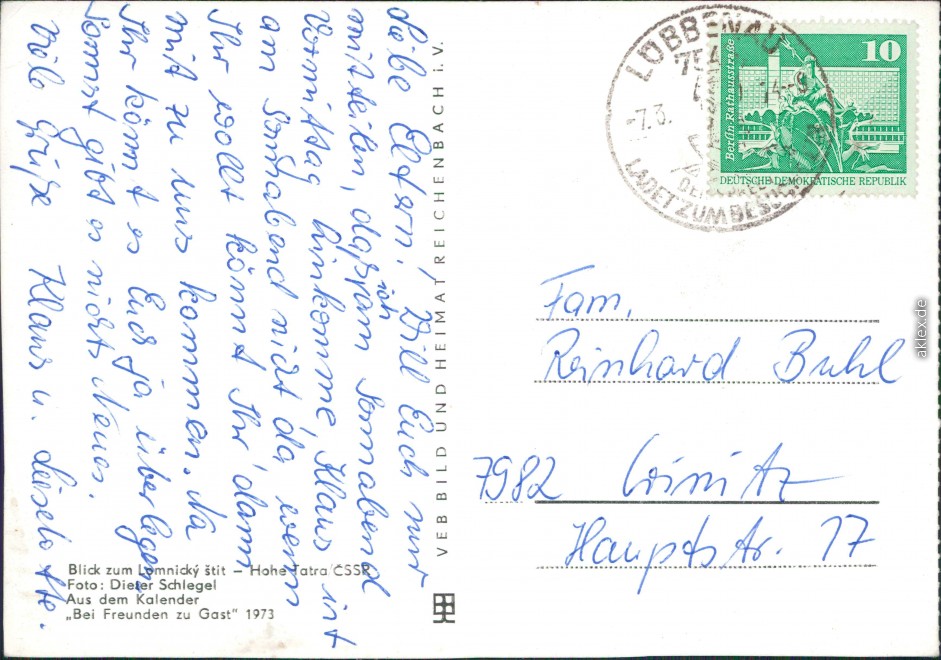 Liebe Eltern! Will Euch nur
mitteilen, daß ich am Sonnabend
Vormittag hinkomme, Klaus ist
am Sonnabend nicht da, wenn
Ihr wollt könnt Ihr dann
mit zu uns kommen. Na
Ihr könnt es Euch ja überlegen.
Sonst gibt es nichts Neues.
Viele Grüße Klaus u. Liselotte.
Blick zum Lomnický štít – Hohe Tatra/ČSSR
Foto: Dieter Schlegel
Aus dem Kalender
„Bei Freunden zu Gast" 1973
VEB BILD UND HEIMAT REICHENBACH i. V.
LÜBBENAU
-7.3.
LADET ZUM BESUCH
10
Berlin-Rathausstraße
DEUTSCHE DEMOKRATISCHE REPUBLIK
Fam.
Reinhard Buhl
7982
Hauptstr. 17
aklex.de